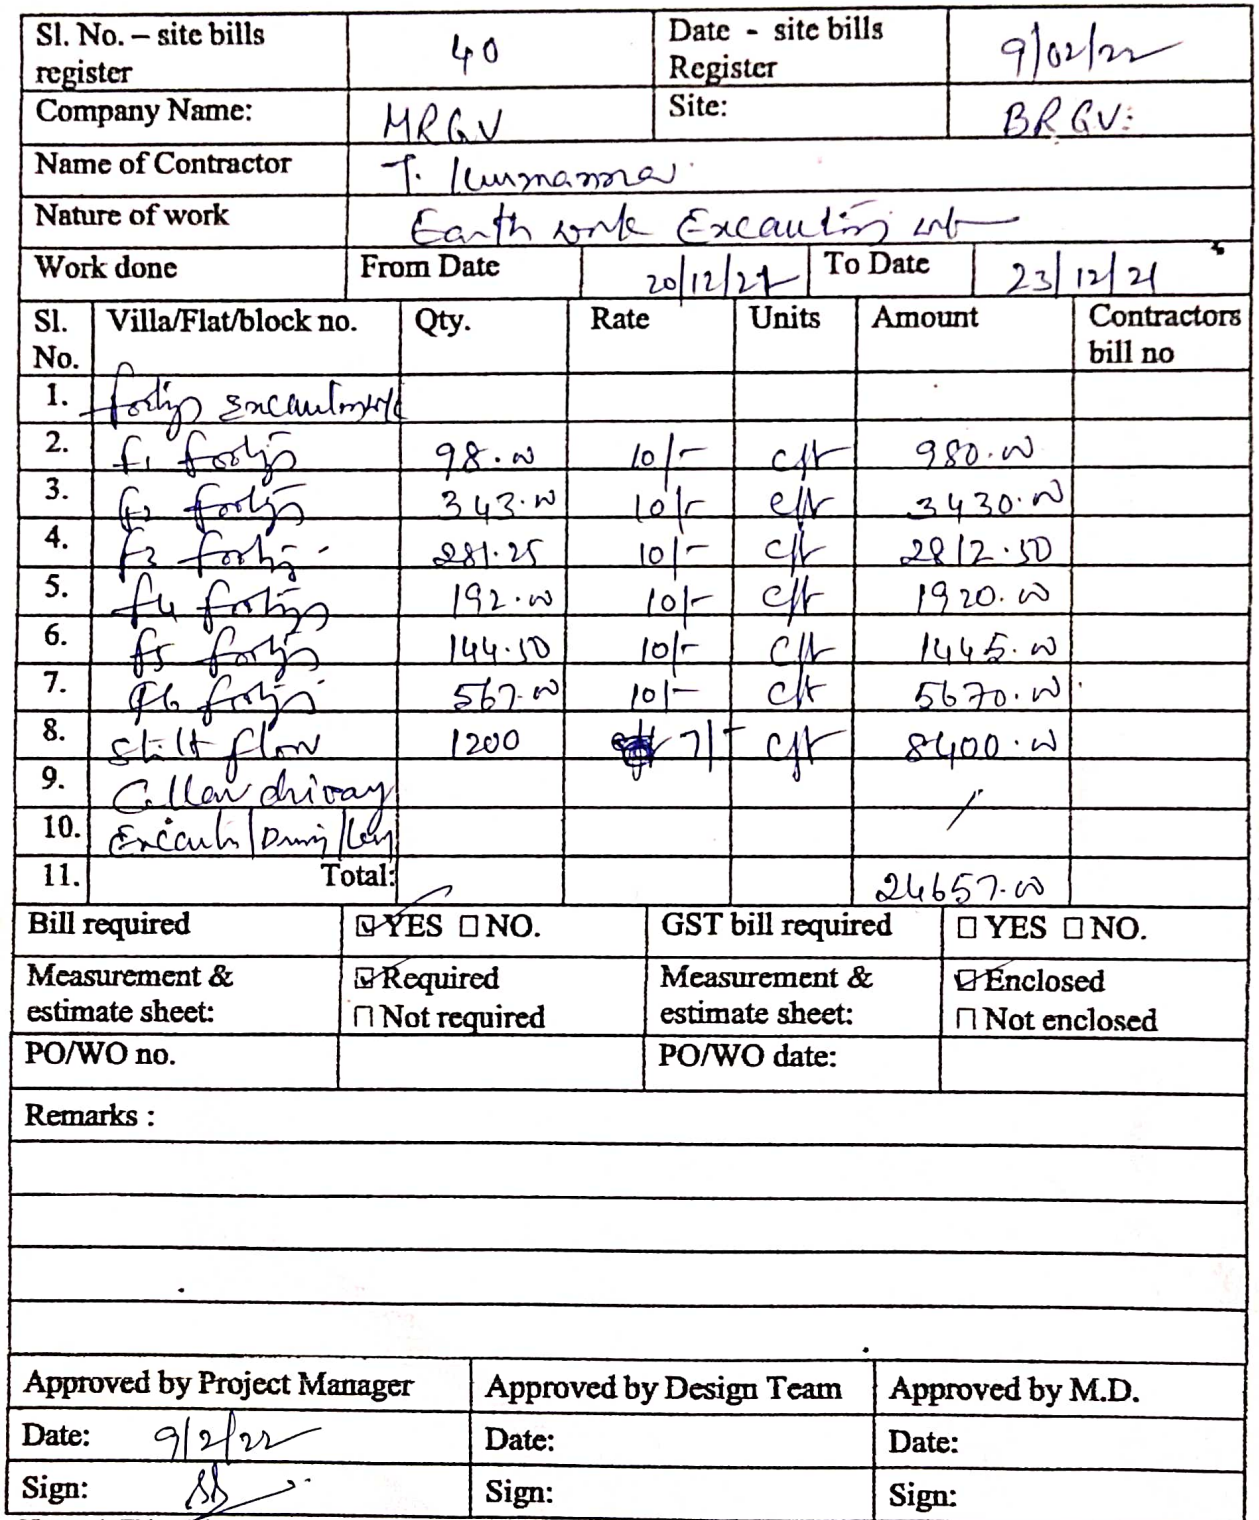 Sl. No. – site bills register 40 Date - site bills Register 9/02/22
Company Name: MRGV Site: BRGV:
Name of Contractor T. Kurmanna
Nature of work Earth work Excaution
Work done From Date 20/12/21 To Date 23/12/21
Sl. No. Villa/Flat/block no. Qty. Rate Units Amount Contractors bill no
1.
2. f1 footijs 98.00 10/- cft 980.00
3. f2 footijs 343.00 10/- cft 3430.00
4. f3 footijs 281.25 10/- cft 2812.50
5. f4 footijs 192.00 10/- cft 1920.00
6. f5 footijs 144.50 10/- cft 1445.00
7. f6 footijs 567.00 10/- cft 5670.00
8. Stilt flow 1200 7/- cft 8400.00
9. Cellar driway
10.
11. Total: 24657.00
Bill required ☑ YES ☐ NO. GST bill required ☐ YES ☐ NO.
Measurement & estimate sheet: ☑ Required ☐ Not required Measurement & estimate sheet: ☑ Enclosed ☐ Not enclosed
PO/WO no. PO/WO date:
Remarks :
Approved by Project Manager Approved by Design Team Approved by M.D.
Date: 9/2/22 Date: Date:
Sign: Sign: Sign: